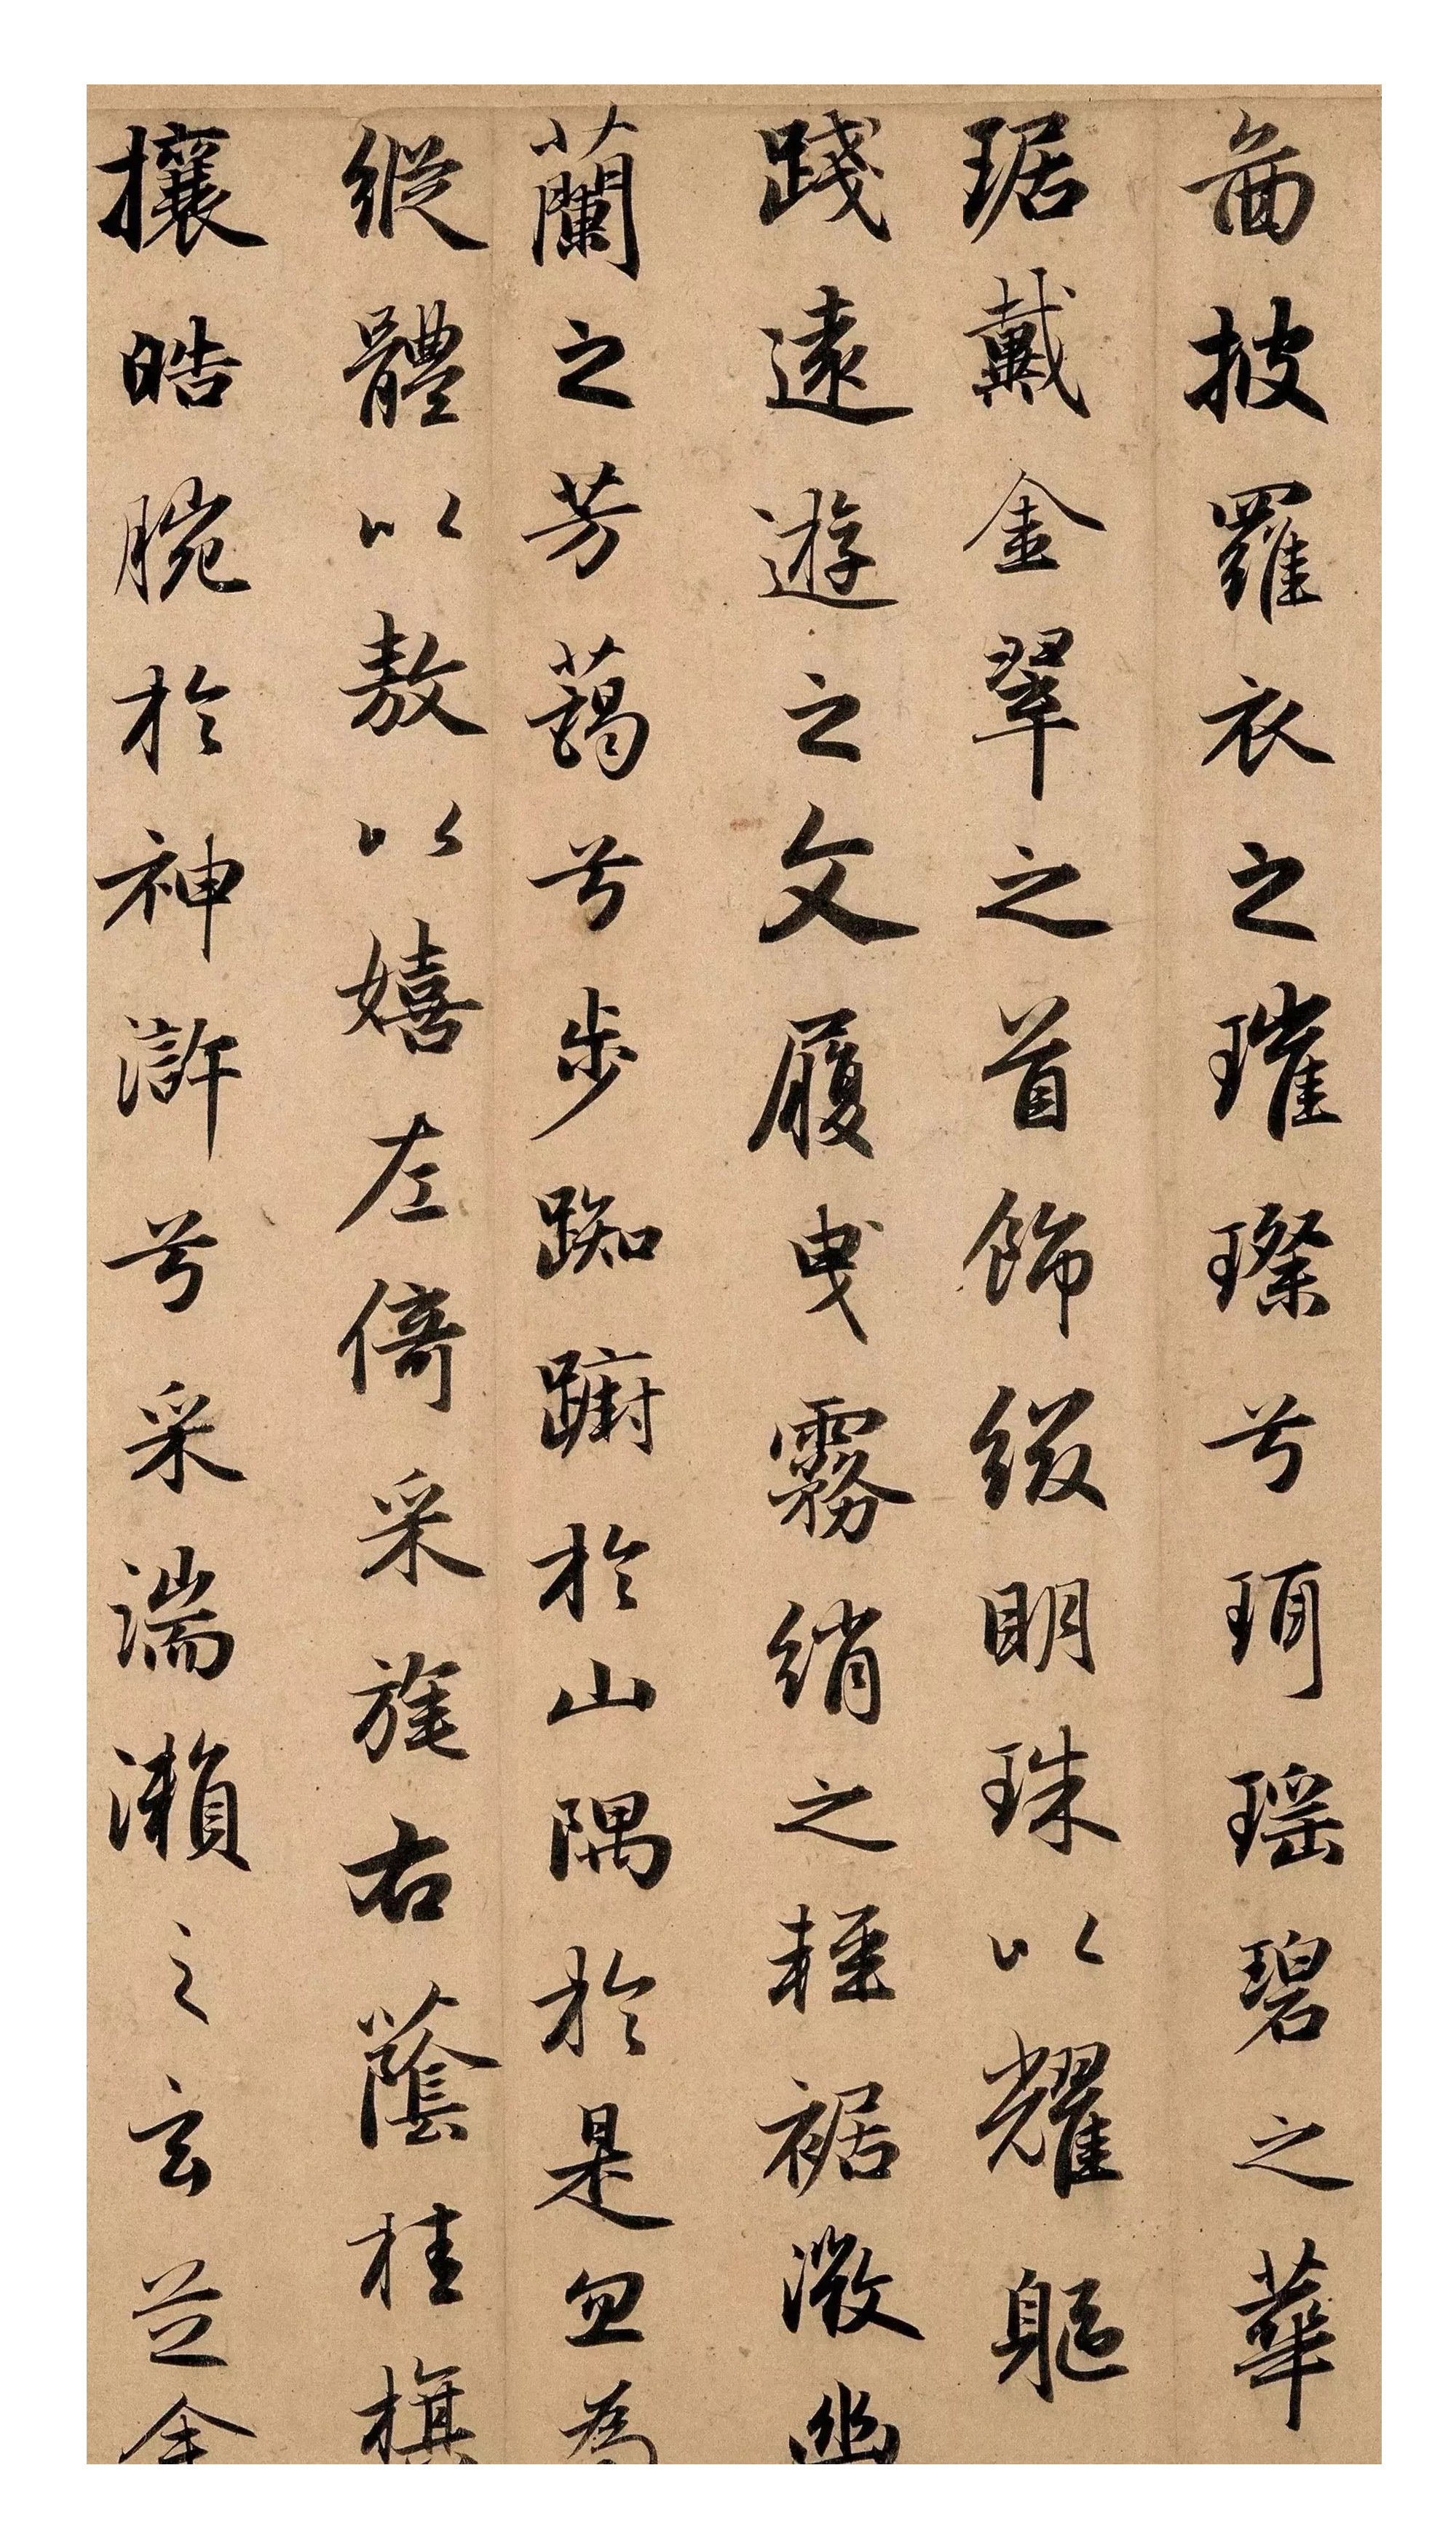 啚披羅衣之璀璨兮珥瑶碧之華
琚戴金翠之首飾綴明珠以耀軀
踐遠遊之文履曳霧綃之輕裾微幽
蘭之芳藹兮步踟躕於山隅於是忽焉
縱體以敖以嬉左倚采旄右蔭桂旗
攘皓腕於神滸兮采湍瀨之玄芝余